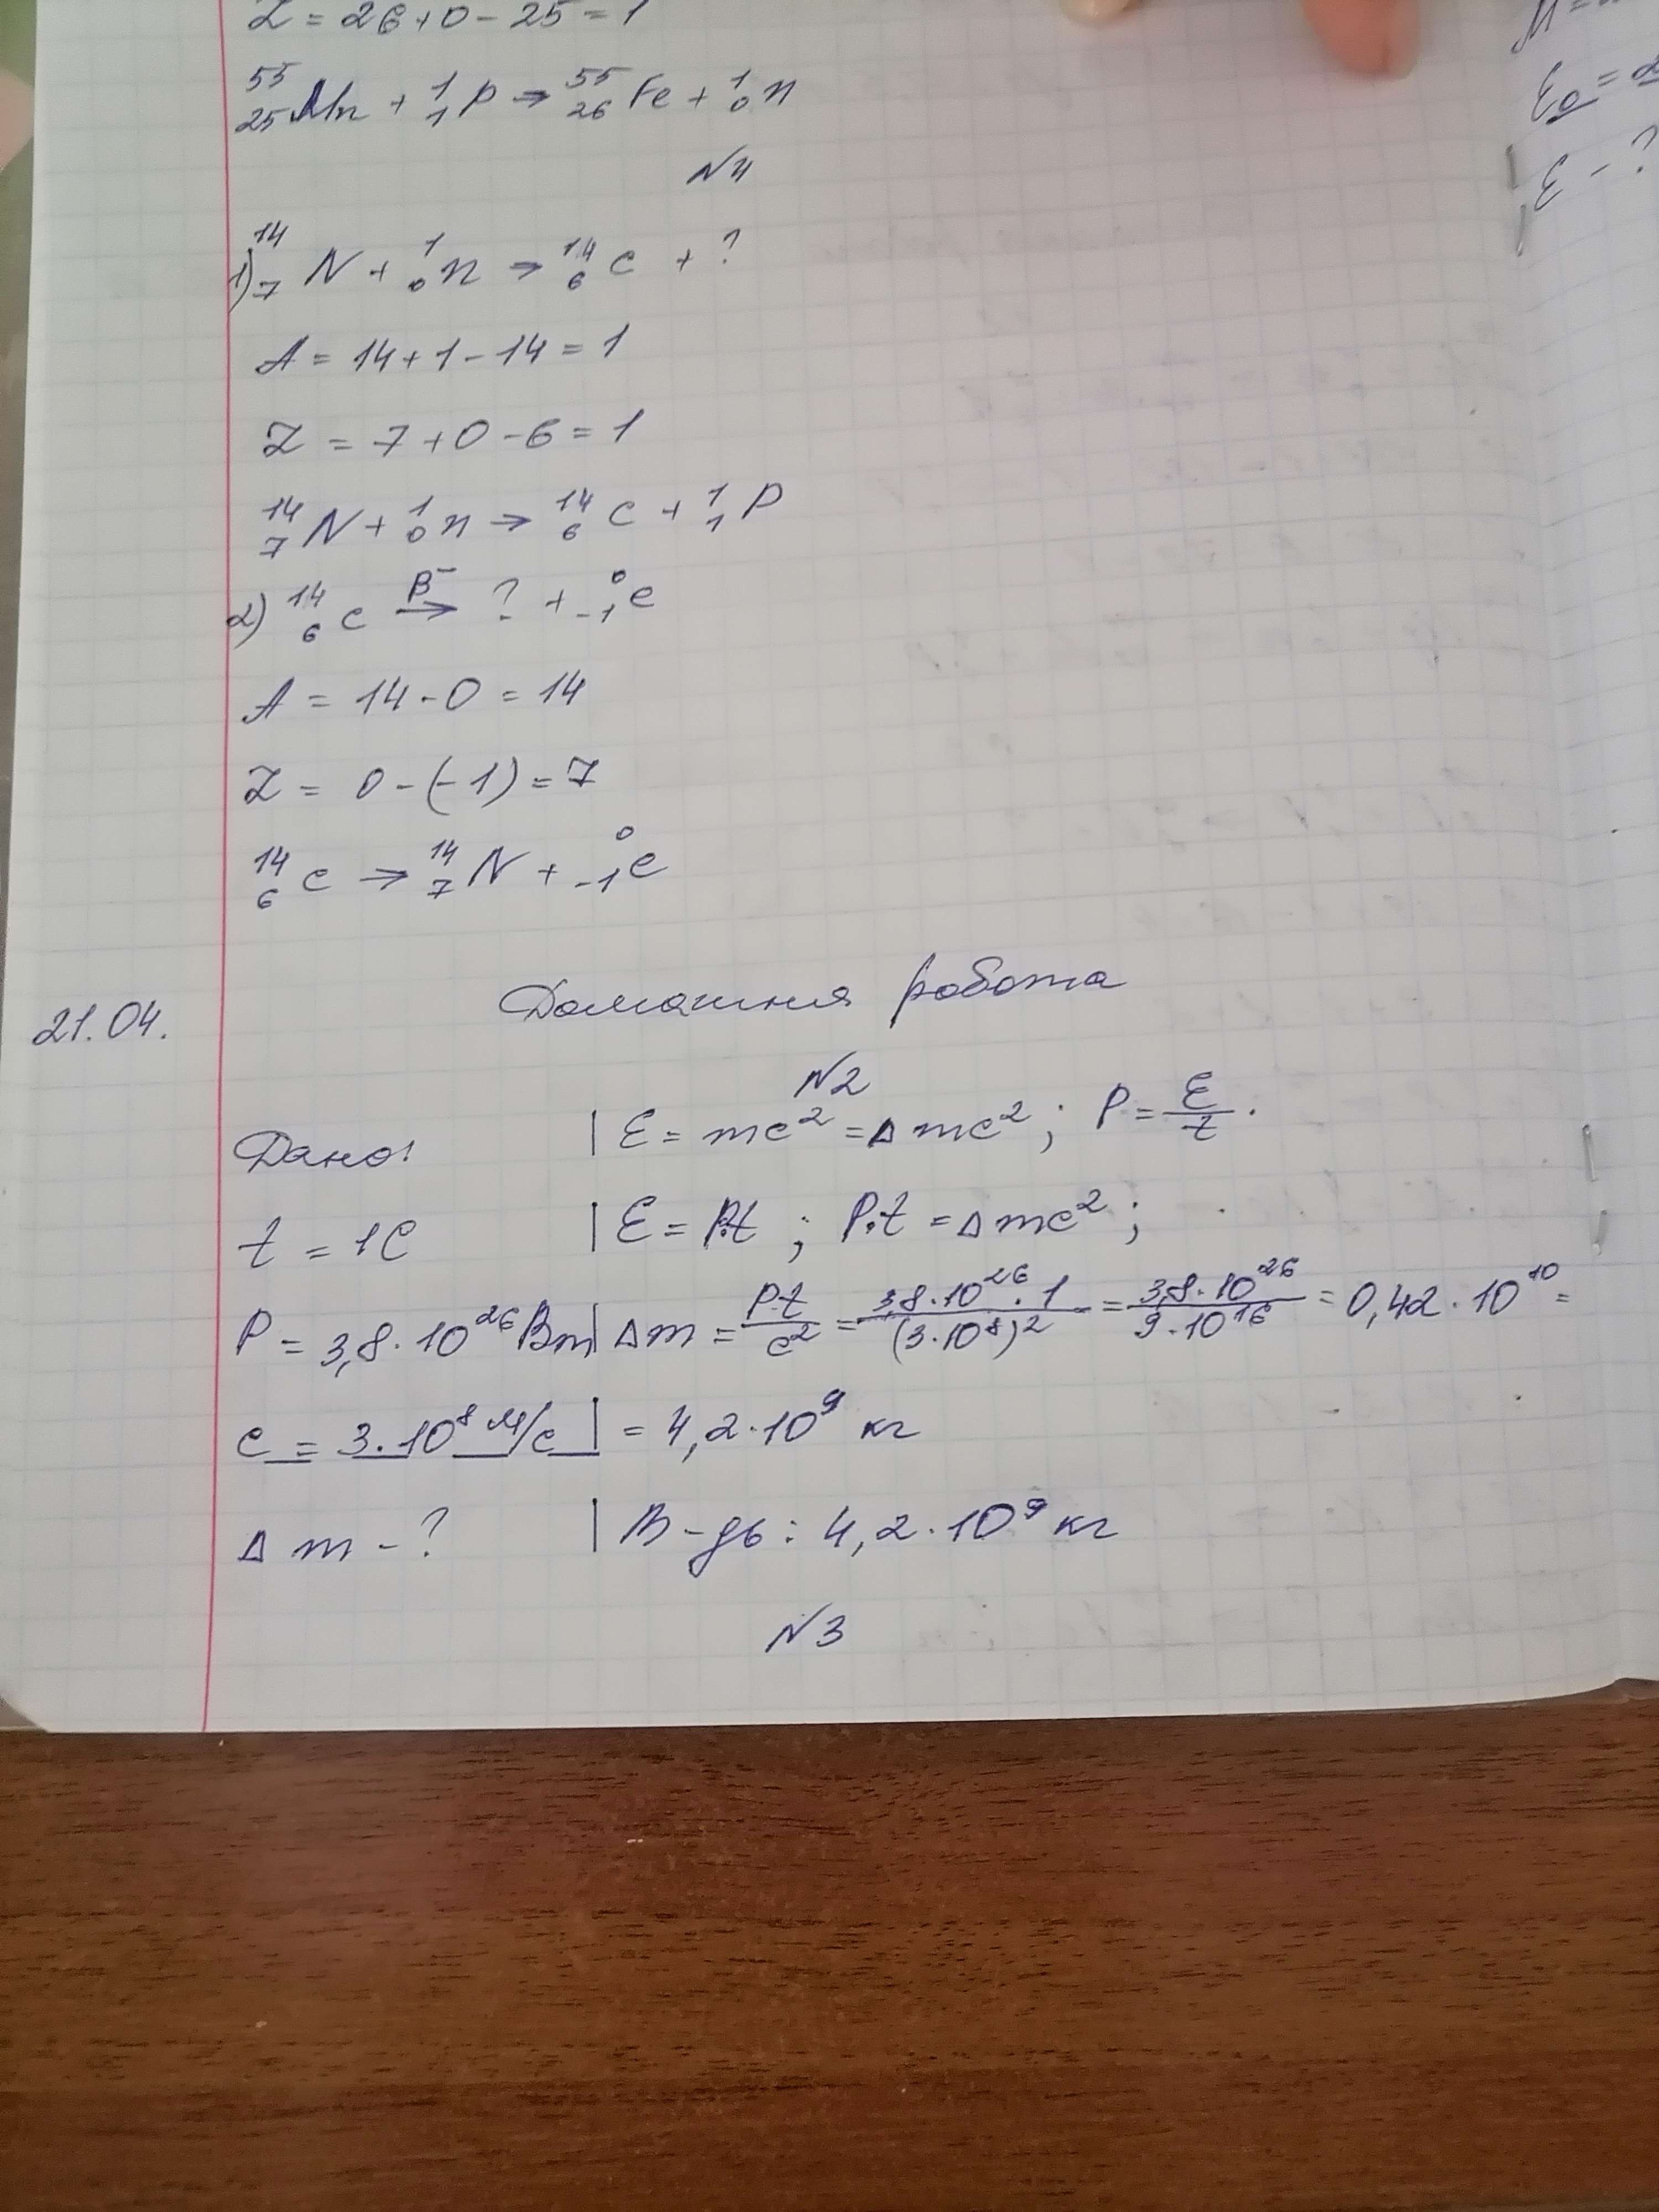 Z = 26 + 0 - 25 = 1
⁵⁵₂₅Mn + ¹₁p → ⁵⁵₂₆Fe + ¹₀n
№4
1) ¹⁴₇N + ¹₀n → ¹⁴₆C + ?
A = 14 + 1 - 14 = 1
Z = 7 + 0 - 6 = 1
¹⁴₇N + ¹₀n → ¹⁴₆C + ¹₁p
2) ¹⁴₆C →(β⁻) ? + ⁰₋₁e
A = 14 - 0 = 14
Z = 0 - (-1) = 7
¹⁴₆C → ¹⁴₇N + ⁰₋₁e
21.04. Домашня робота
№2
Дано: | E = mc² = Δmc²; P = E/t.
t = 1с | E = P·t; P·t = Δmc²;
P = 3,8·10²⁶ Вт | Δm = P·t/c² = 3,8·10²⁶·1/(3·10⁸)² = 3,8·10²⁶/9·10¹⁶ = 0,42·10¹⁰ =
c = 3·10⁸ м/с | = 4,2·10⁹ кг
Δm - ? | В-дь: 4,2·10⁹ кг
№3
E₀ =
E - ?